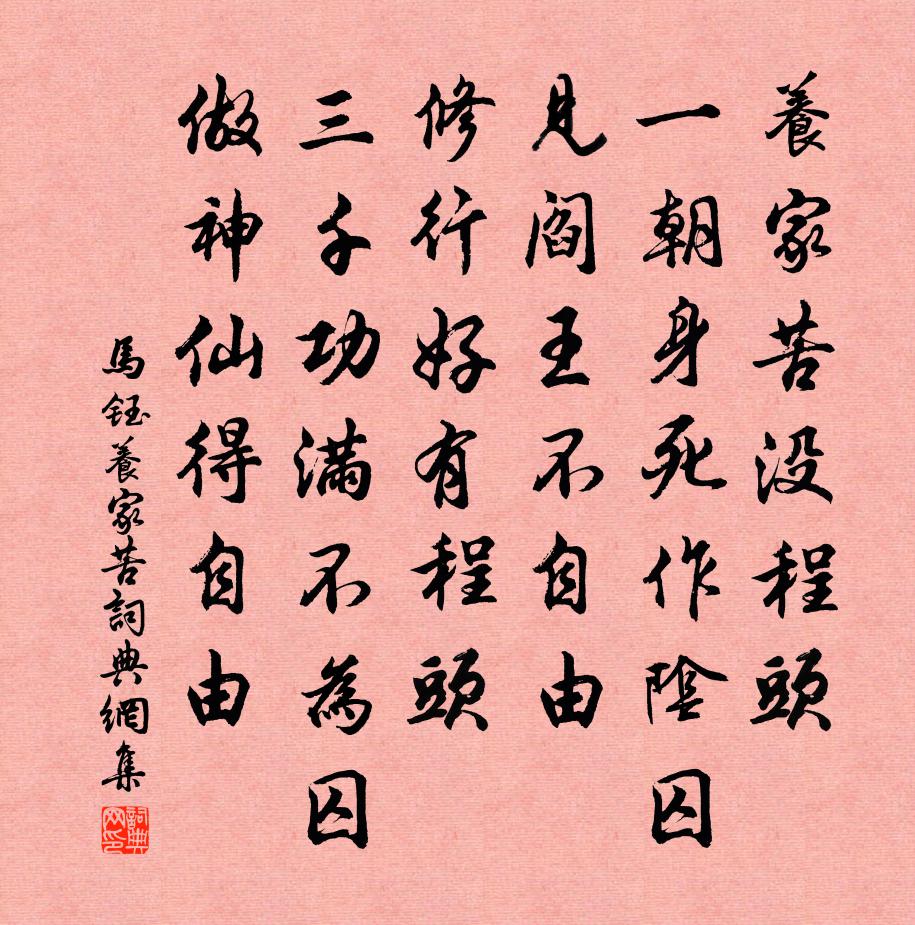 養家苦没程頭
一朝身死作陰囚
見閻王不自由
修行好有程頭
三千功滿不為囚
做神仙得自由
馬鈺養家苦詞典網集
詞典网印